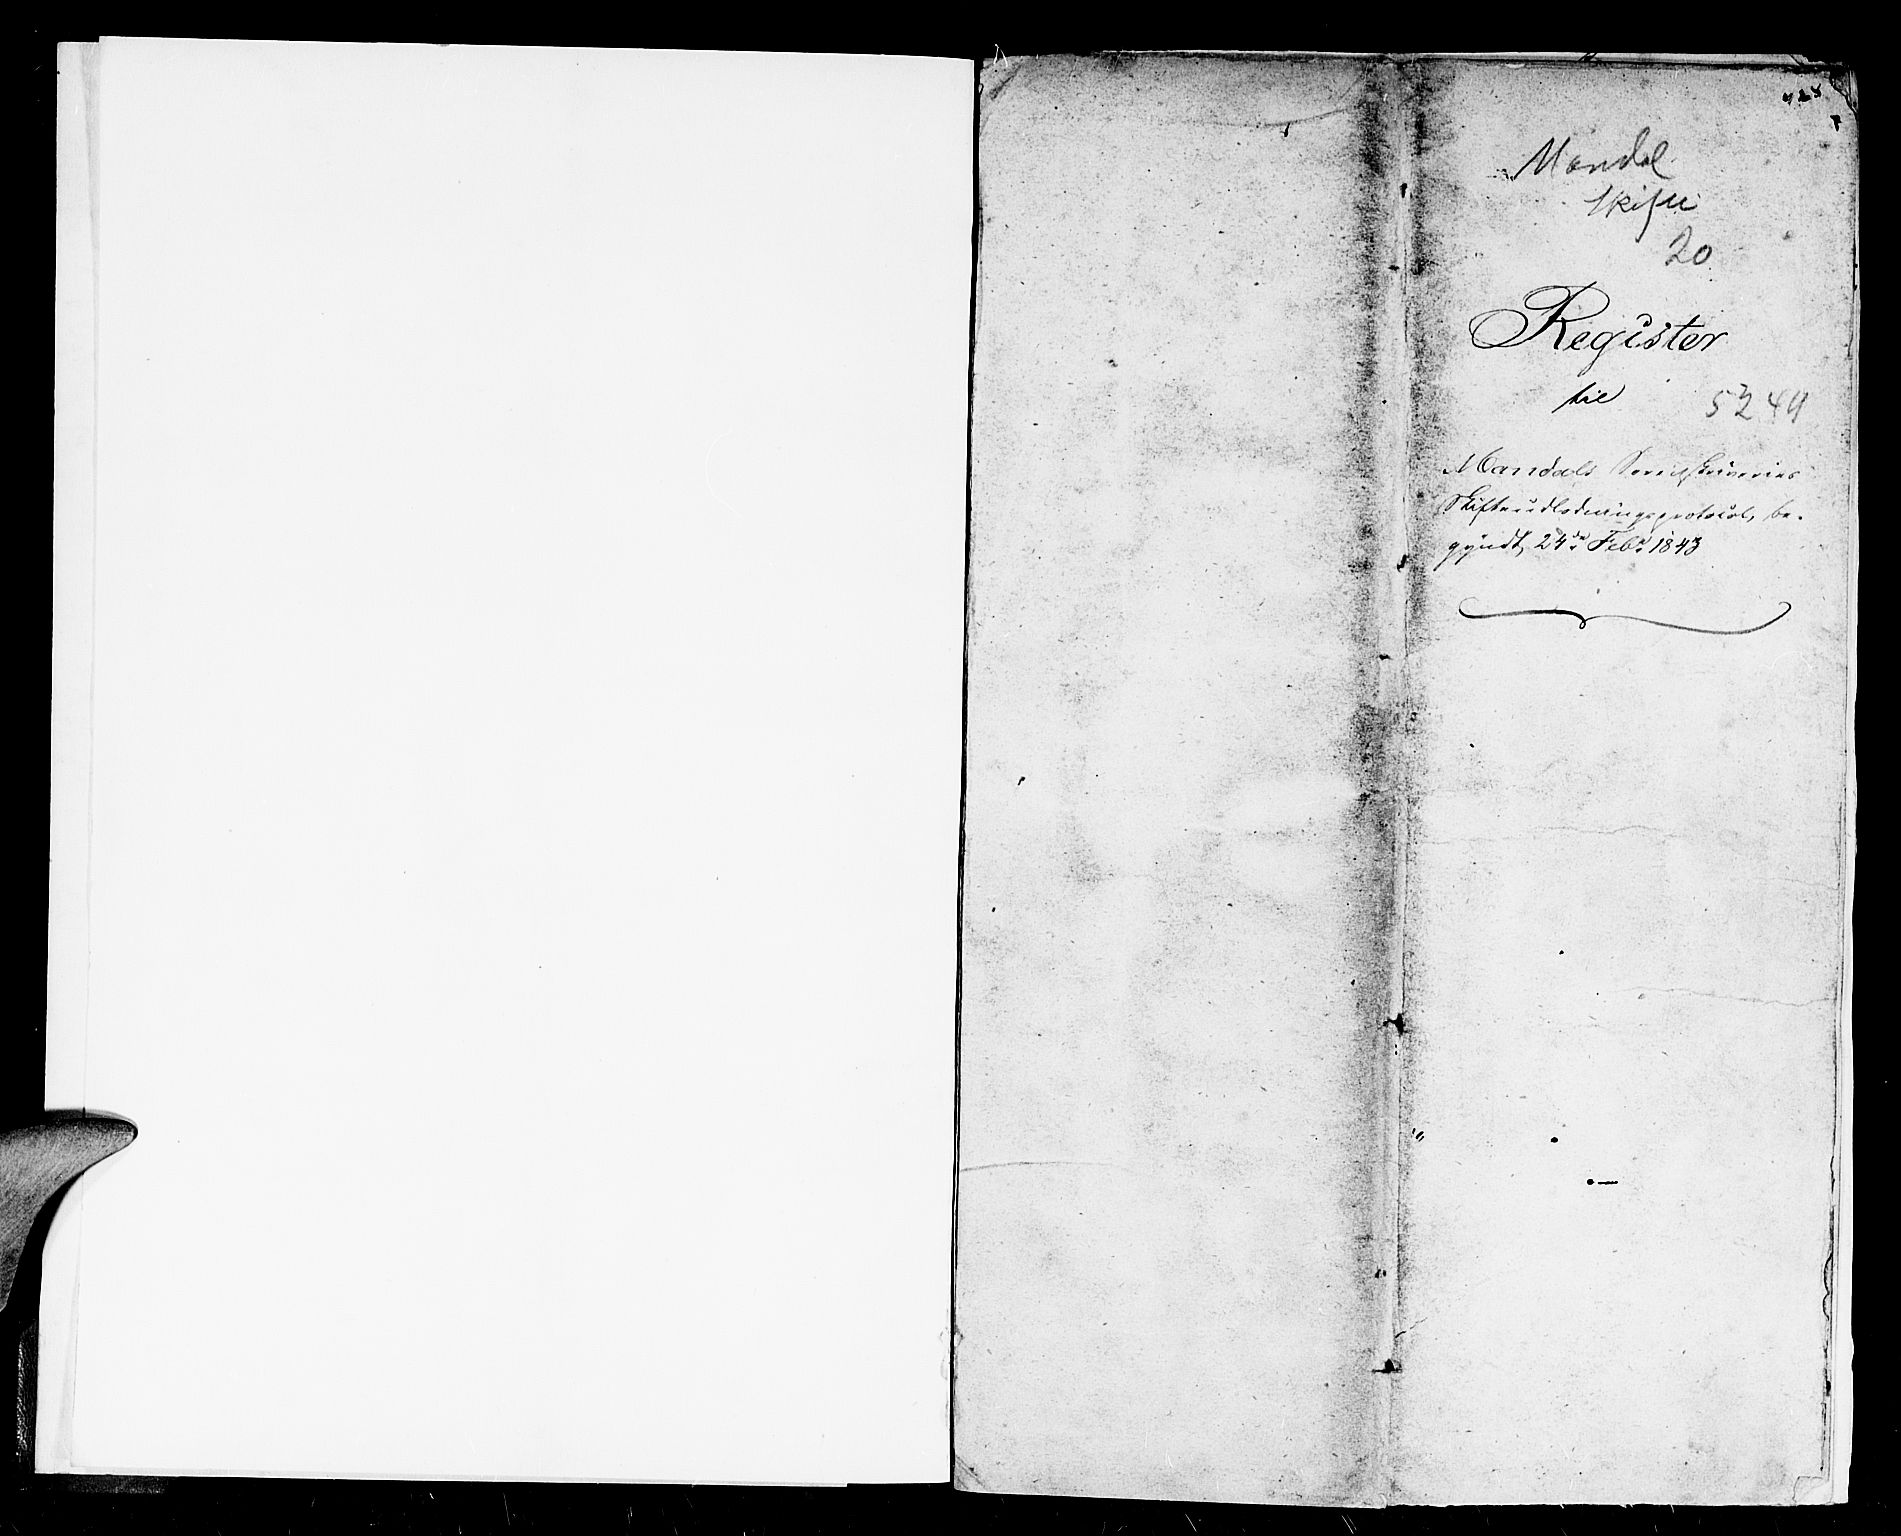 Mandal
Skifte
20
Register
til
5244
Mandals Sorenskriveries
Skifteudlodningsprotocol, be-
gyndt, 24de Febr 1843